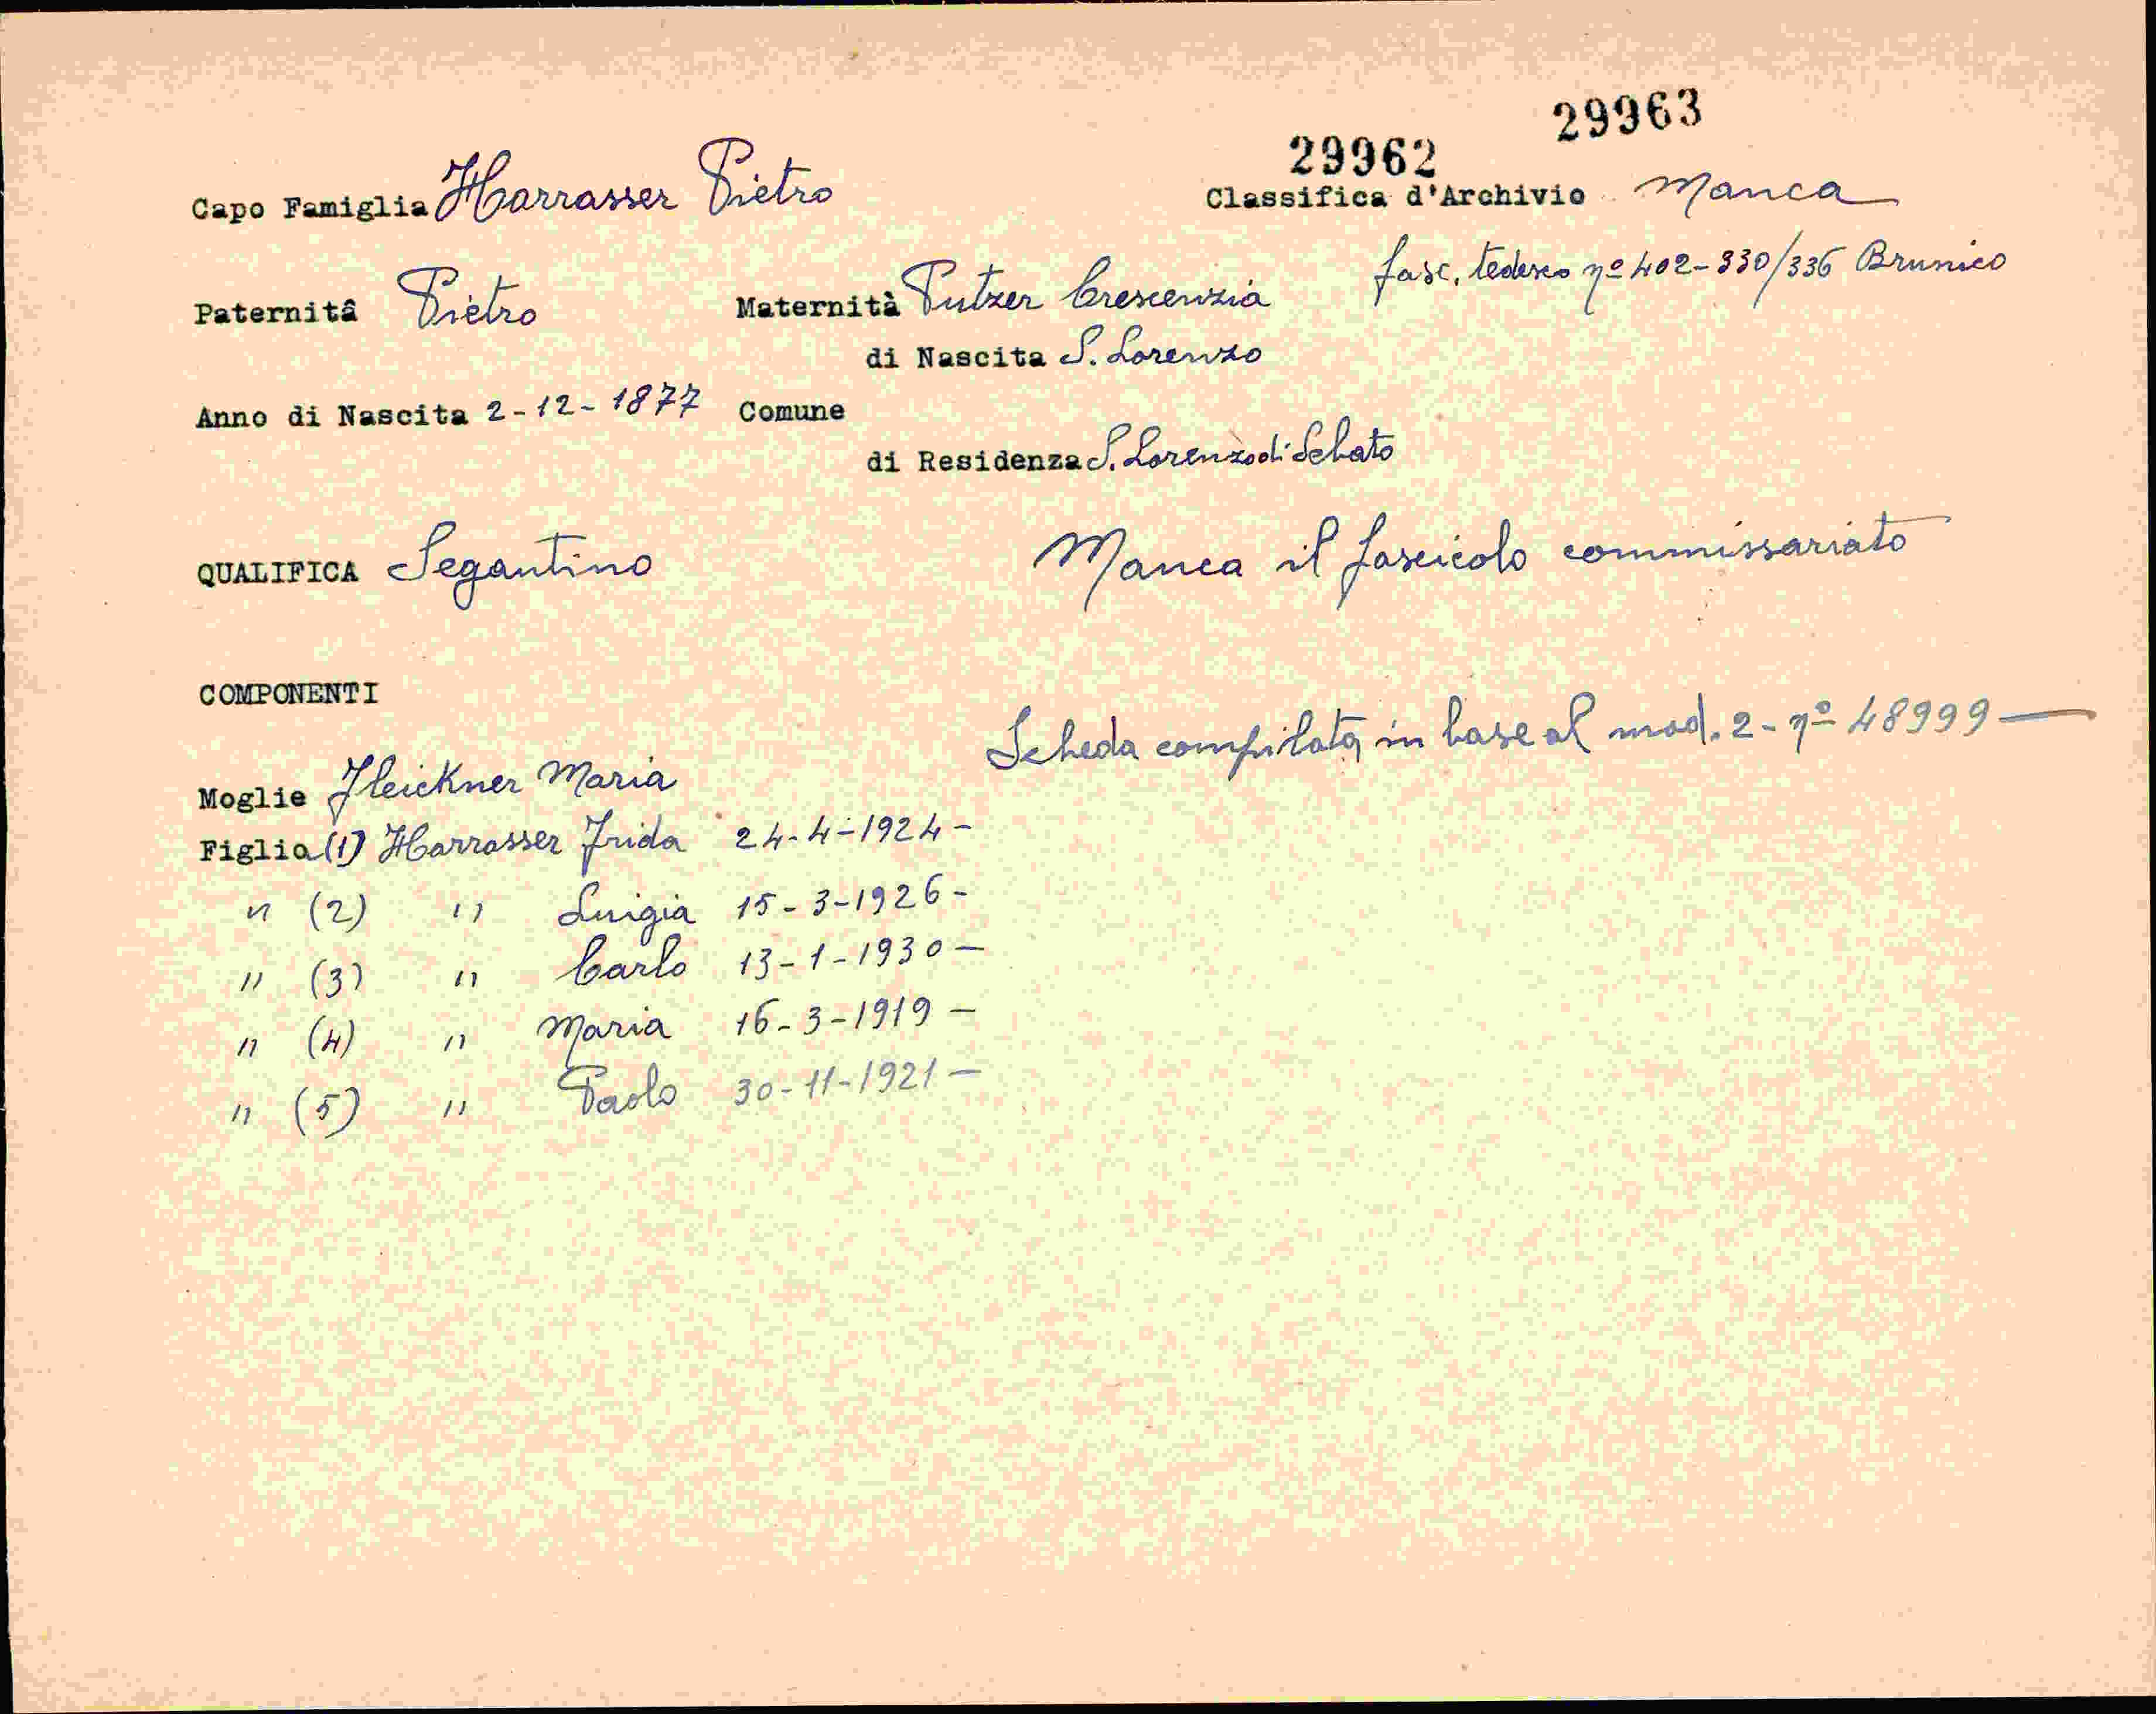 29963
29962
Capo Famiglia Harrasser Pietro
Classifica d'Archivio Manca
fasc. tedesco nº 402-330/336 Brunico
Paternitâ Pietro
Maternità Putzer Crescenzia
di Nascita S. Lorenzo
Anno di Nascita 2-12-1877
Comune
di Residenza S. Lorenzo di Sebato
QUALIFICA Segantino
Manca il fascicolo commissariato
COMPONENTI
Scheda compilata in base al mod. 2-nº 48999—
Moglie Fleickner Maria
Figlia (1) Harrasser Frida 24-4-1924-
" (2) " Luigia 15-3-1926-
" (3) " Carlo 13-1-1930—
" (4) " Maria 16-3-1919—
" (5) " Paolo 30-11-1921—